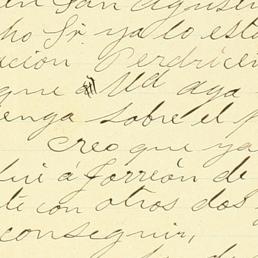 en San Agustin
ho Sr. ya lo esta
ción Perdrice
que á Ud aga
enga sobre el
Creo que ya
fui á Torreón de
te con otros dos
conseguir,